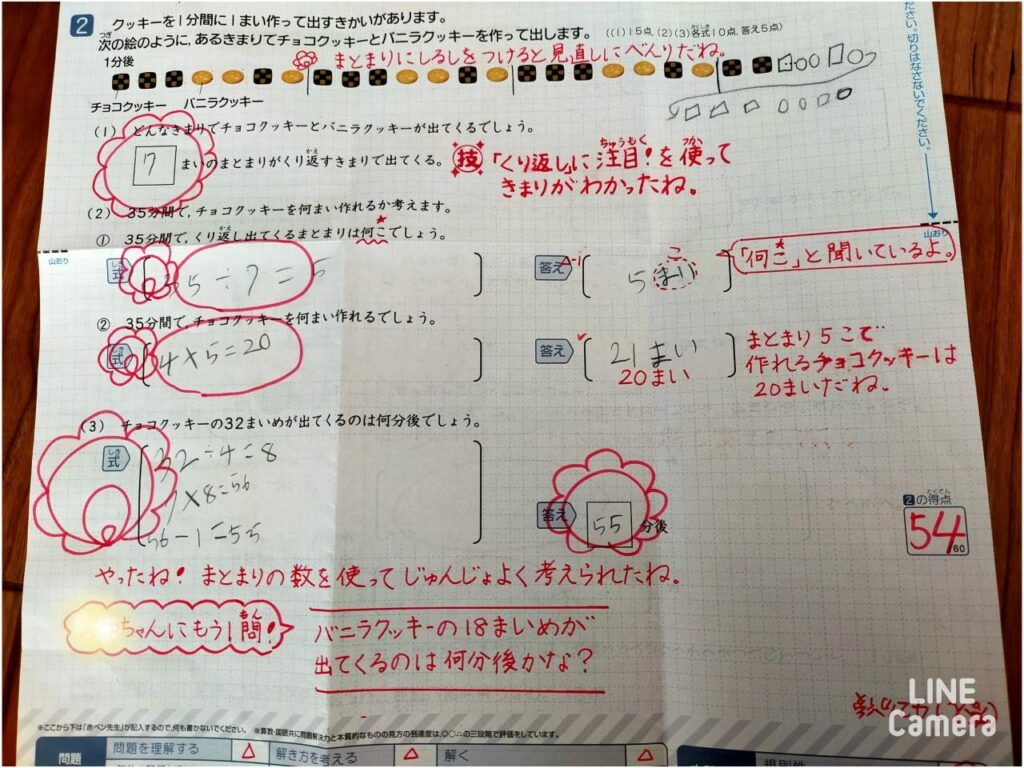 2 クッキーを1分間に1まい作って出すきかいがあります。
次の絵のように,あるきまりでチョコクッキーとバニラクッキーを作って出します。 ((1)15点,(2)(3)各式10点,答え5点)
まとまりにしるしをつけると見直しにべんりだね。
1分後
チョコクッキー バニラクッキー
(1) どんなきまりでチョコクッキーとバニラクッキーが出てくるでしょう。
7 まいのまとまりがくり返すきまりで出てくる。
技 「くり返し」に注目!を使って
きまりがわかったね。
(2) 35分間で,チョコクッキーを何まい作れるか考えます。
① 35分間で,くり返し出てくるまとまりは何こでしょう。
式 35÷7=5
答え 5まり
こ
△-1
「何こ」と聞いているよ。
② 35分間で,チョコクッキーを何まい作れるでしょう。
式 4×5=20
答え 21まい
20まい
まとまり5こで
作れるチョコクッキーは
20まいだね。
(3) チョコクッキーの32まいめが出てくるのは何分後でしょう。
式 32÷4=8
7×8=56
56-1=55
答え 55 分後
2の得点
54
60
やったね!まとまりの数を使ってじゅんじょよく考えられたね。
ちゃんにもう1問!
バニラクッキーの18まいめが
出てくるのは何分後かな?
山おり
山おり
ださい。切りはなさないでください。
※ここから下は「赤ペン先生」が記入するので,何も書かないでください。
問題
問題を理解する △
解き方を考える △
解く △
規則性
LINE
Camera